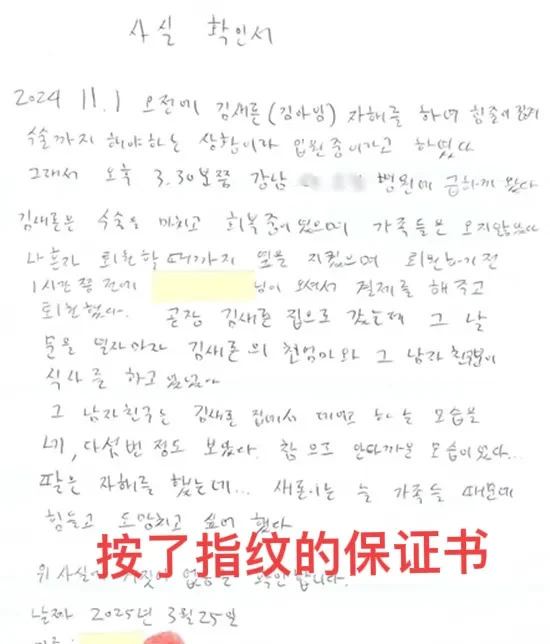 사실 확인서
2024 11.1 오전에 김새론(김아임) 자해를 하여 힘줄이
수술까지 해야하는 상황이라 입원중이라고 하였다
그래서 오후 3.30분쯤 강남 병원에 급하게 갔다
김새론은 수술을 마치고 회복 중이었으며 가족들은 오지않았다
나혼자 퇴원할때까지 옆을 지켰으며 퇴원하기전
1시간 쯤 전에 님이 오셔서 결제를 해주고
퇴원했다. 곧장 김새론 집으로 갔는데 그 날
문을 열자마자 김새론의 친엄마와 그 남자친구분이
식사를 하고 있었다
그 남자친구는 김새론 집에서 하는 모습을
네, 다섯번 정도 보았다. 참으로 안타까운 모습이었다...
팔은 자해를 했는데... 새론이는 늘 가족들 때문에
힘들고 도망치고 싶어 했다
按了指纹的保证书
위 사실에 거짓이 없음을 확인합니다.
날짜 2025년 3월25일